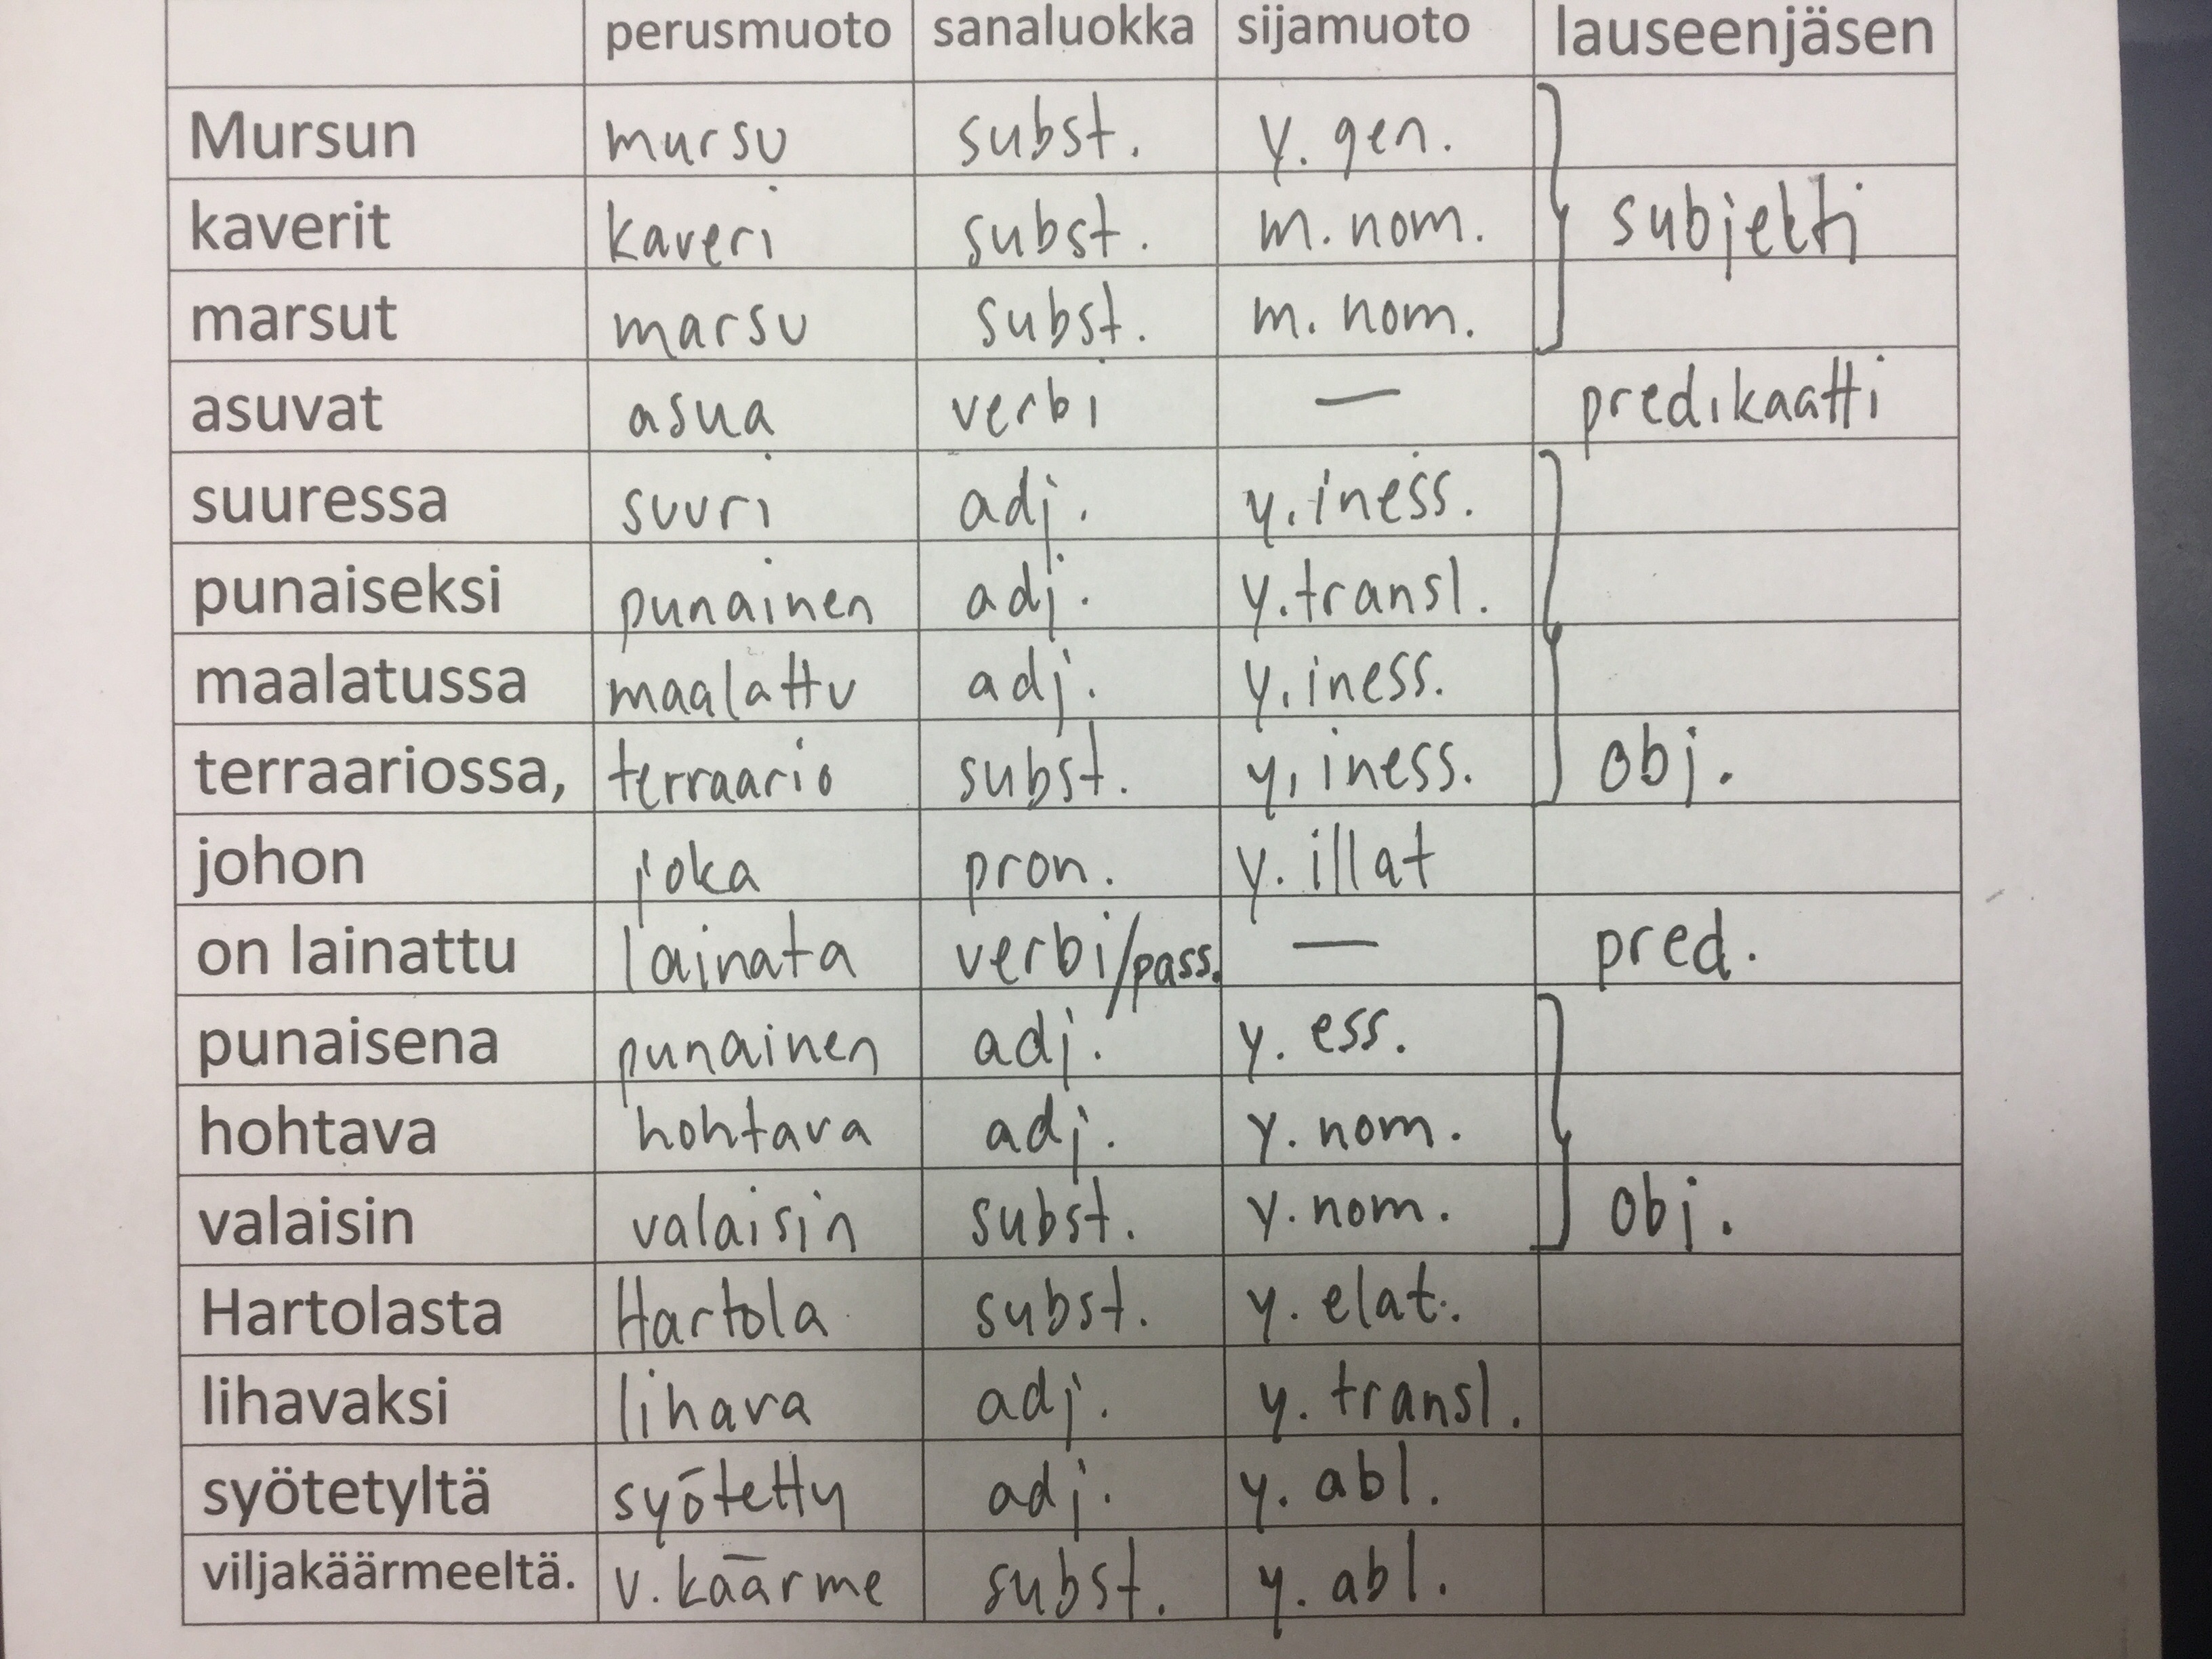 perusmuoto sanaluokka sijamuoto lauseenjäsen
Mursun mursu subst. y. gen.
kaverit kaveri subst. m. nom. subjekti
marsut marsu subst. m. nom.
asuvat asua verbi — predikaatti
suuressa suuri adj. y. iness.
punaiseksi punainen adj. y. transl.
maalatussa maalattu adj. y. iness.
terraariossa, terraario subst. y. iness. obj.
johon joka pron. y. illat
on lainattu lainata verbi/pass. — pred.
punaisena punainen adj. y. ess.
hohtava hohtava adj. y. nom.
valaisin valaisin subst. y. nom. obj.
Hartolasta Hartola subst. y. elat.
lihavaksi lihava adj. y. transl.
syötetyltä syötetty adj. y. abl.
viljakäärmeeltä. v. käärme subst. y. abl.